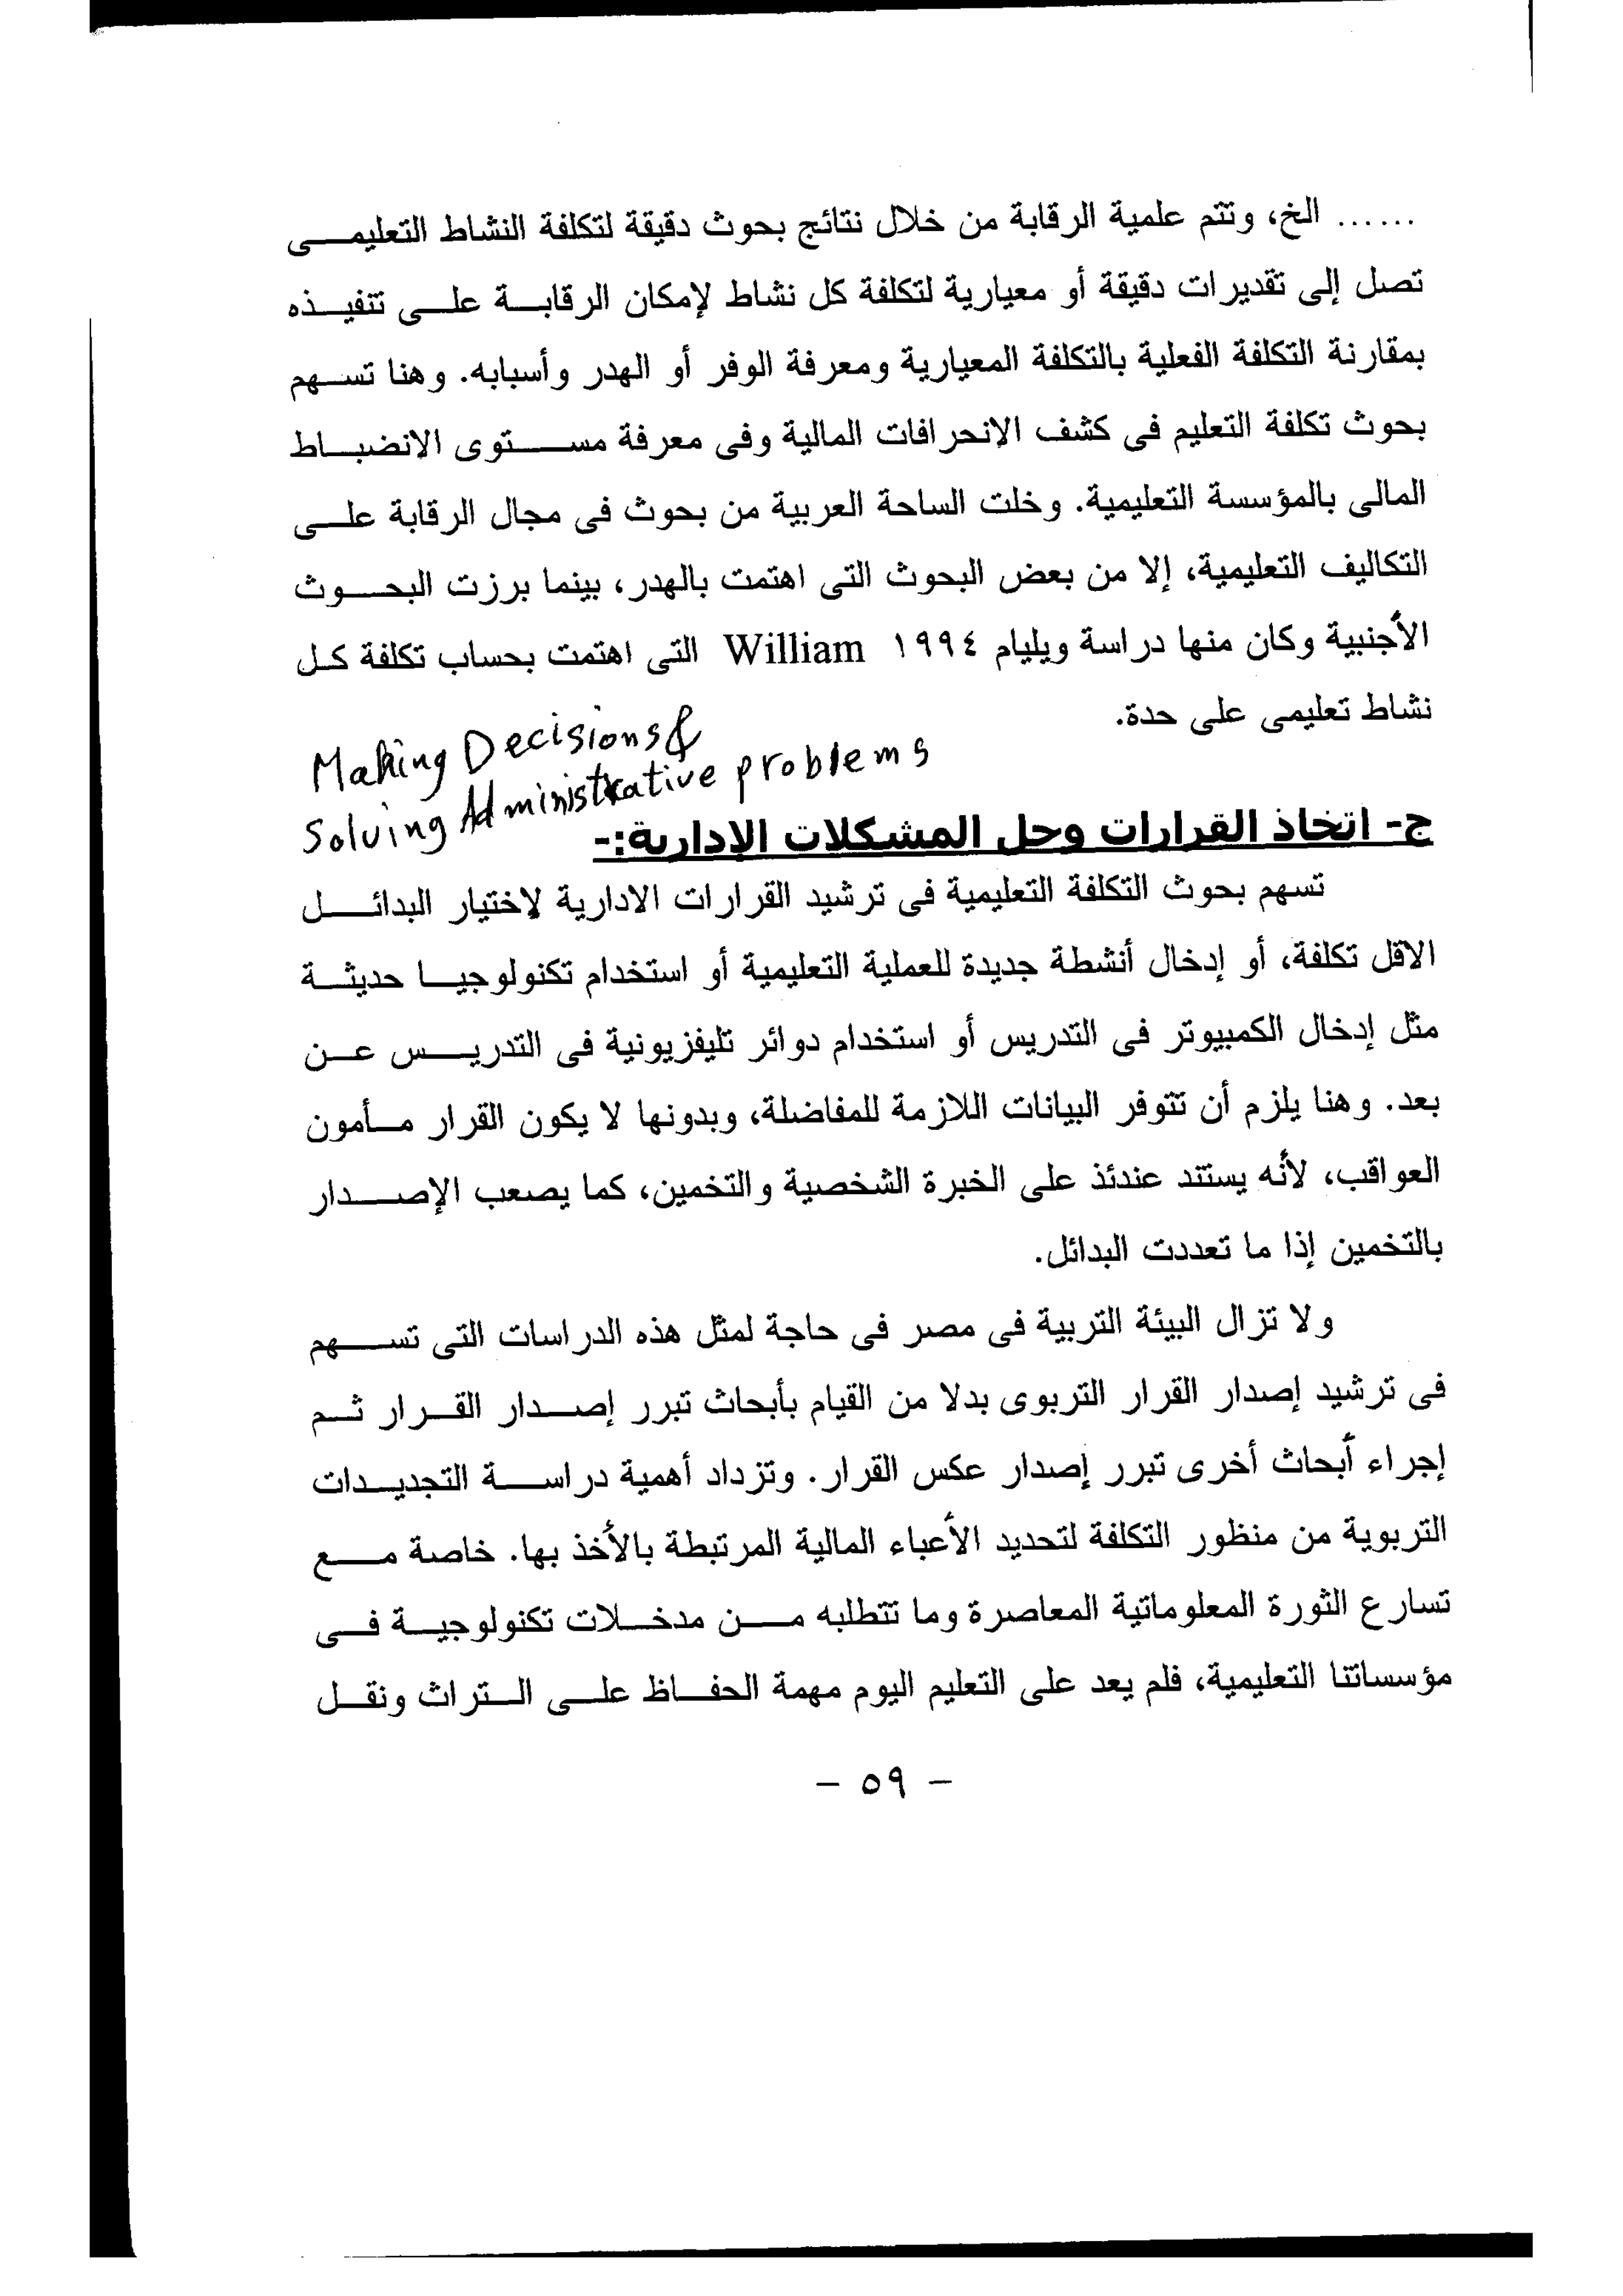 ...... الخ، وتتم علمية الرقابة من خلال نتائج بحوث دقيقة لتكلفة النشاط التعليمى
تصل إلى تقديرات دقيقة أو معيارية لتكلفة كل نشاط لإمكان الرقابة على تنفيذه
بمقارنة التكلفة الفعلية بالتكلفة المعيارية ومعرفة الوفر أو الهدر وأسبابه. وهنا تسهم
بحوث تكلفة التعليم فى كشف الإنحرافات المالية وفى معرفة مستوى الانضباط
المالى بالمؤسسة التعليمية. وخلت الساحة العربية من بحوث فى مجال الرقابة على
التكاليف التعليمية، إلا من بعض البحوث التى اهتمت بالهدر، بينما برزت البحوث
الأجنبية وكان منها دراسة ويليام ١٩٩٤ William التى اهتمت بحساب تكلفة كل
نشاط تعليمى على حدة.
Making Decisions &
Solving Administrative problems
ج- اتخاذ القرارات وحل المشكلات الإدارية:-
تسهم بحوث التكلفة التعليمية فى ترشيد القرارات الادارية لإختيار البدائل
الاقل تكلفة، أو إدخال أنشطة جديدة للعملية التعليمية أو استخدام تكنولوجيا حديثة
مثل إدخال الكمبيوتر فى التدريس أو استخدام دوائر تليفزيونية فى التدريس عن
بعد. وهنا يلزم أن تتوفر البيانات اللازمة للمفاضلة، وبدونها لا يكون القرار مأمون
العواقب، لأنه يستند عندئذ على الخبرة الشخصية والتخمين، كما يصعب الإصدار
بالتخمين إذا ما تعددت البدائل.
ولا تزال البيئة التربية فى مصر فى حاجة لمثل هذه الدراسات التى تسهم
فى ترشيد إصدار القرار التربوى بدلا من القيام بأبحاث تبرر إصدار القرار ثم
إجراء أبحاث أخرى تبرر إصدار عكس القرار. وتزداد أهمية دراسة التجديدات
التربوية من منظور التكلفة لتحديد الأعباء المالية المرتبطة بالأخذ بها. خاصة مع
تسارع الثورة المعلوماتية المعاصرة وما تتطلبه من مدخلات تكنولوجية فى
مؤسساتنا التعليمية، فلم يعد على التعليم اليوم مهمة الحفاظ على التراث ونقل
- ٥٩ -